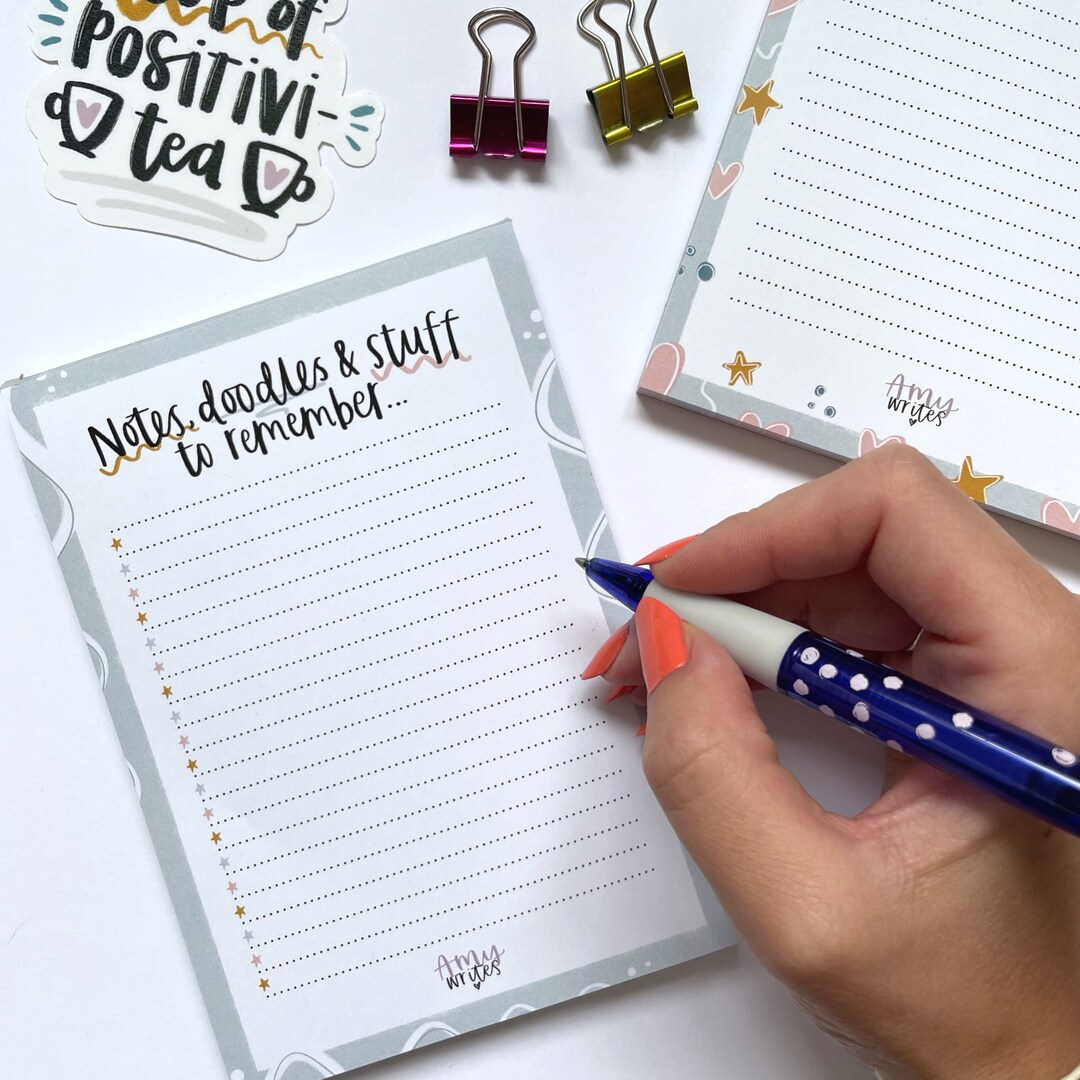 of
positivi-
tea
Notes, doodles & stuff
to remember...
Amy
writes
Amy
writes